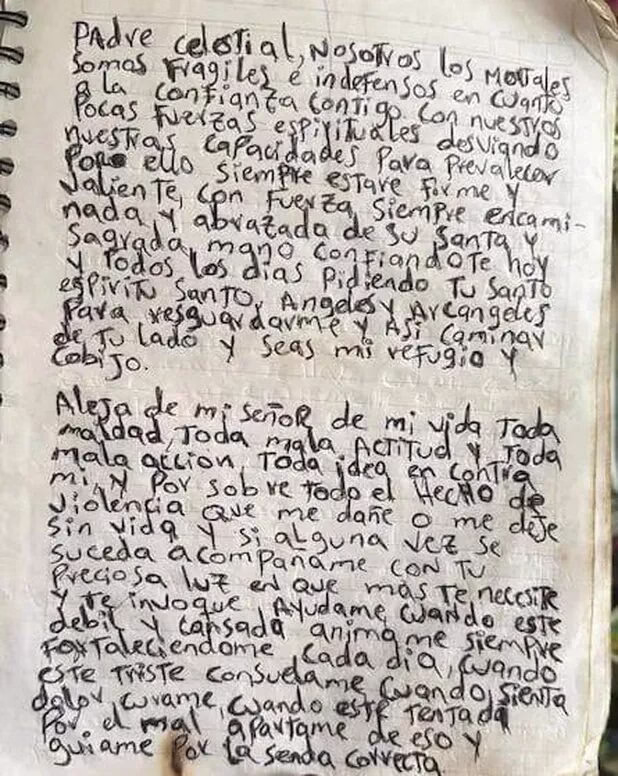 PADRE Celestial, NOSOTROS los MORTALES
somos FRagiles e indefensos en cuanto
a la confianza contigo con nuestras
Pocas Fuerzas espirituales desviando
nuestras capacidades Para Prevalecer
Por ello siempre estare firme y
valiente, con Fuerza siempre encami-
nada y abrazada de su santa y
sagrada mano confiandote hoy
y Todos los dias Pidiendo Tu Santo
espiritu santo, Angeles y Arcangeles
Para resguardarme y Asi caminar
de Tu lado y seas mi refugio y
cobijo.
Aleja de mi señor de mi vida Toda
maldad, Toda mala Actitud y Toda
mala accion, Toda idea en contra
mi, y Por sobre Todo el Hecho de
violencia que me dañe o me deje
sin vida y si alguna vez se
suceda acompaname con Tu
Preciosa luz en que mas Te necesite
y Te invoque, Ayudame cuando este
debil y cansada animame siempre
Fortaleciendome cada dia, cuando
este Triste consuelame cuando sienta
dolor, curame, cuando este Tentada
Por el mal apartame de eso y
guiame Por la senda correcta